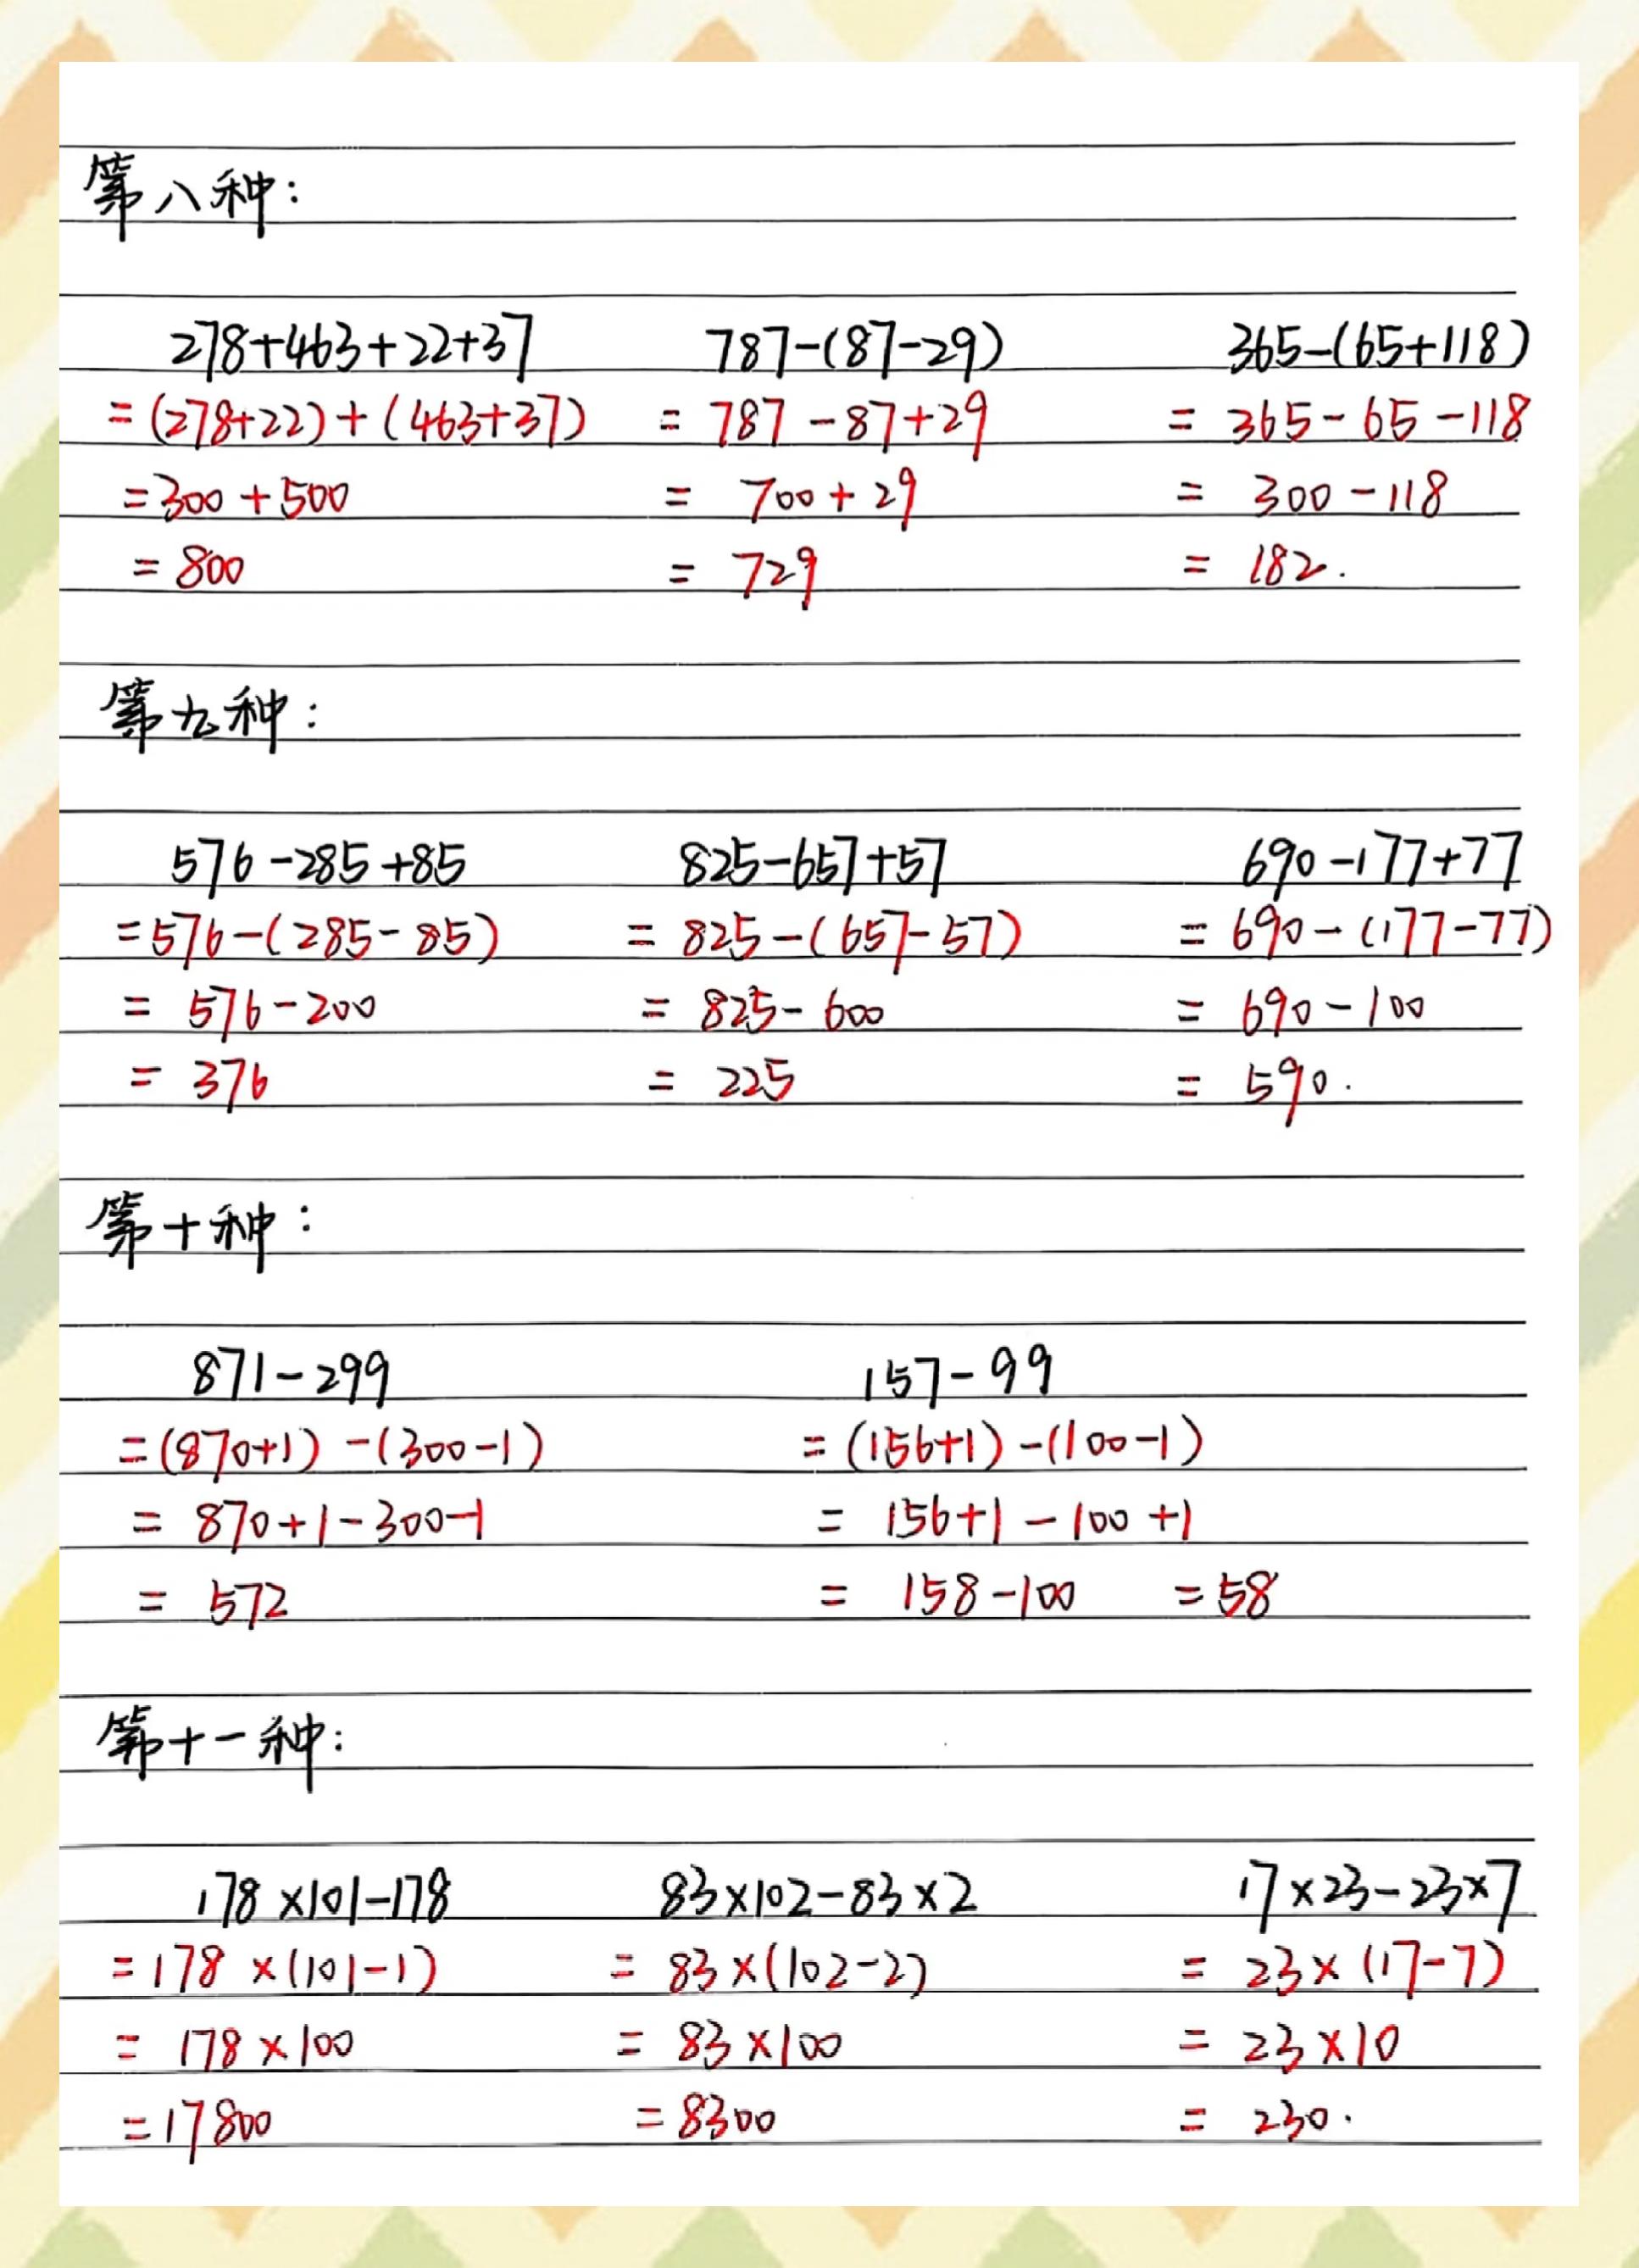 第八种：
278+463+22+37 787-(87-29) 365-(65+118)
=(278+22)+(463+37) = 787-87+29 = 365-65-118
=300+500 = 700+29 = 300-118
= 800 = 729 = 182.
第九种：
576-285+85 825-657+57 690-177+77
=576-(285-85) = 825-(657-57) = 690-(177-77)
= 576-200 = 825-600 = 690-100
= 376 = 225 = 590.
第十种：
871-299 157-99
=(870+1)-(300-1) =(156+1)-(100-1)
= 870+1-300-1 = 156+1-100+1
= 572 = 158-100 =58
第十一种：
178×101-178 83×102-83×2 17×23-23×7
=178×(101-1) = 83×(102-2) = 23×(17-7)
= 178×100 = 83×100 = 23×10
=17800 =8300 = 230.